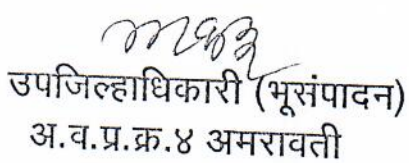 उपजिल्हाधिकारी (भूसंपादन)
अ.व.प्र.क्र.४ अमरावती